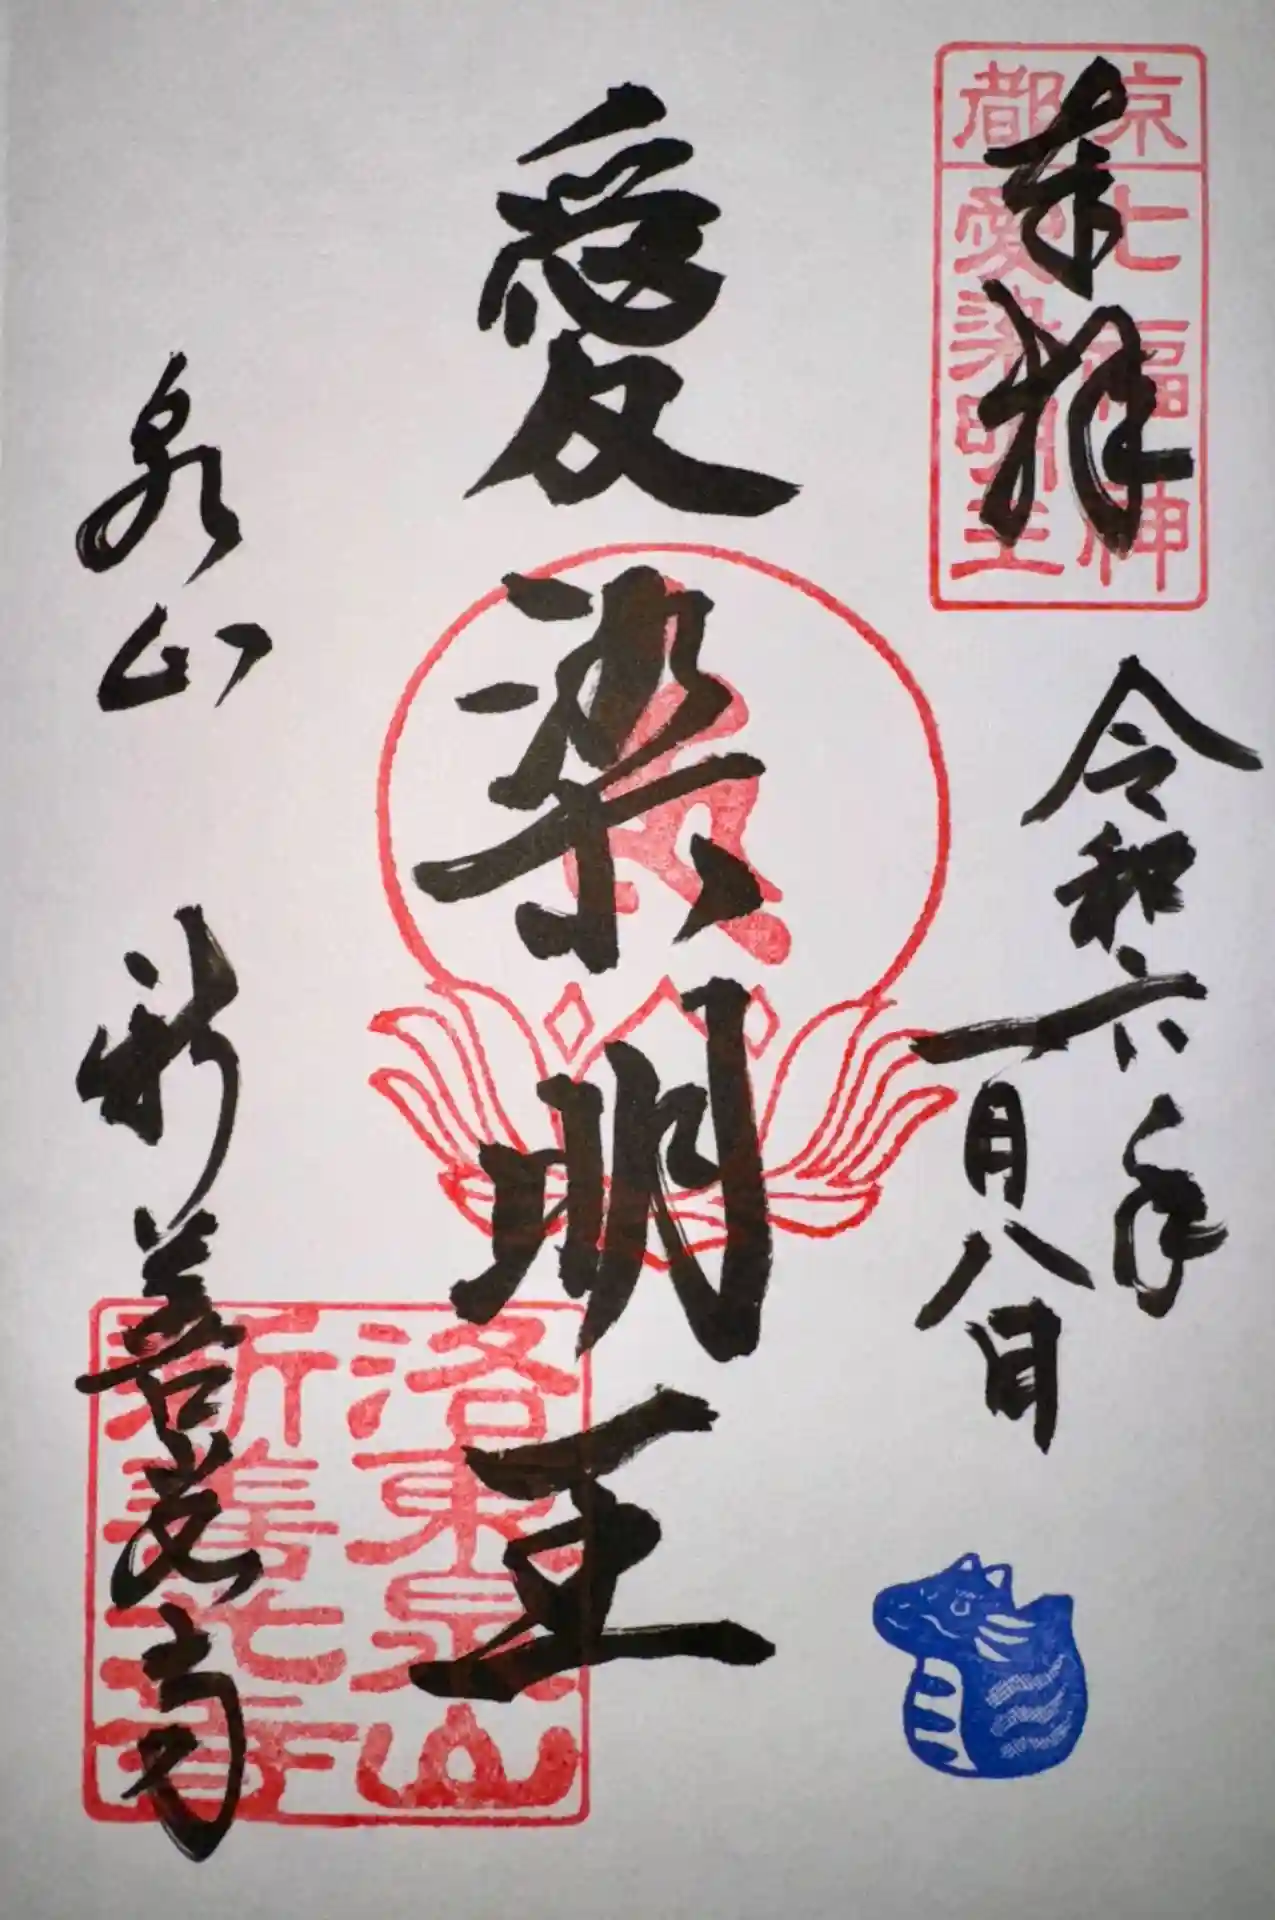 京都
七福神
愛染明王
奉拝
令和六年
一月八日
愛染明王
泉山 新善光寺
洛東泉山
新善光寺